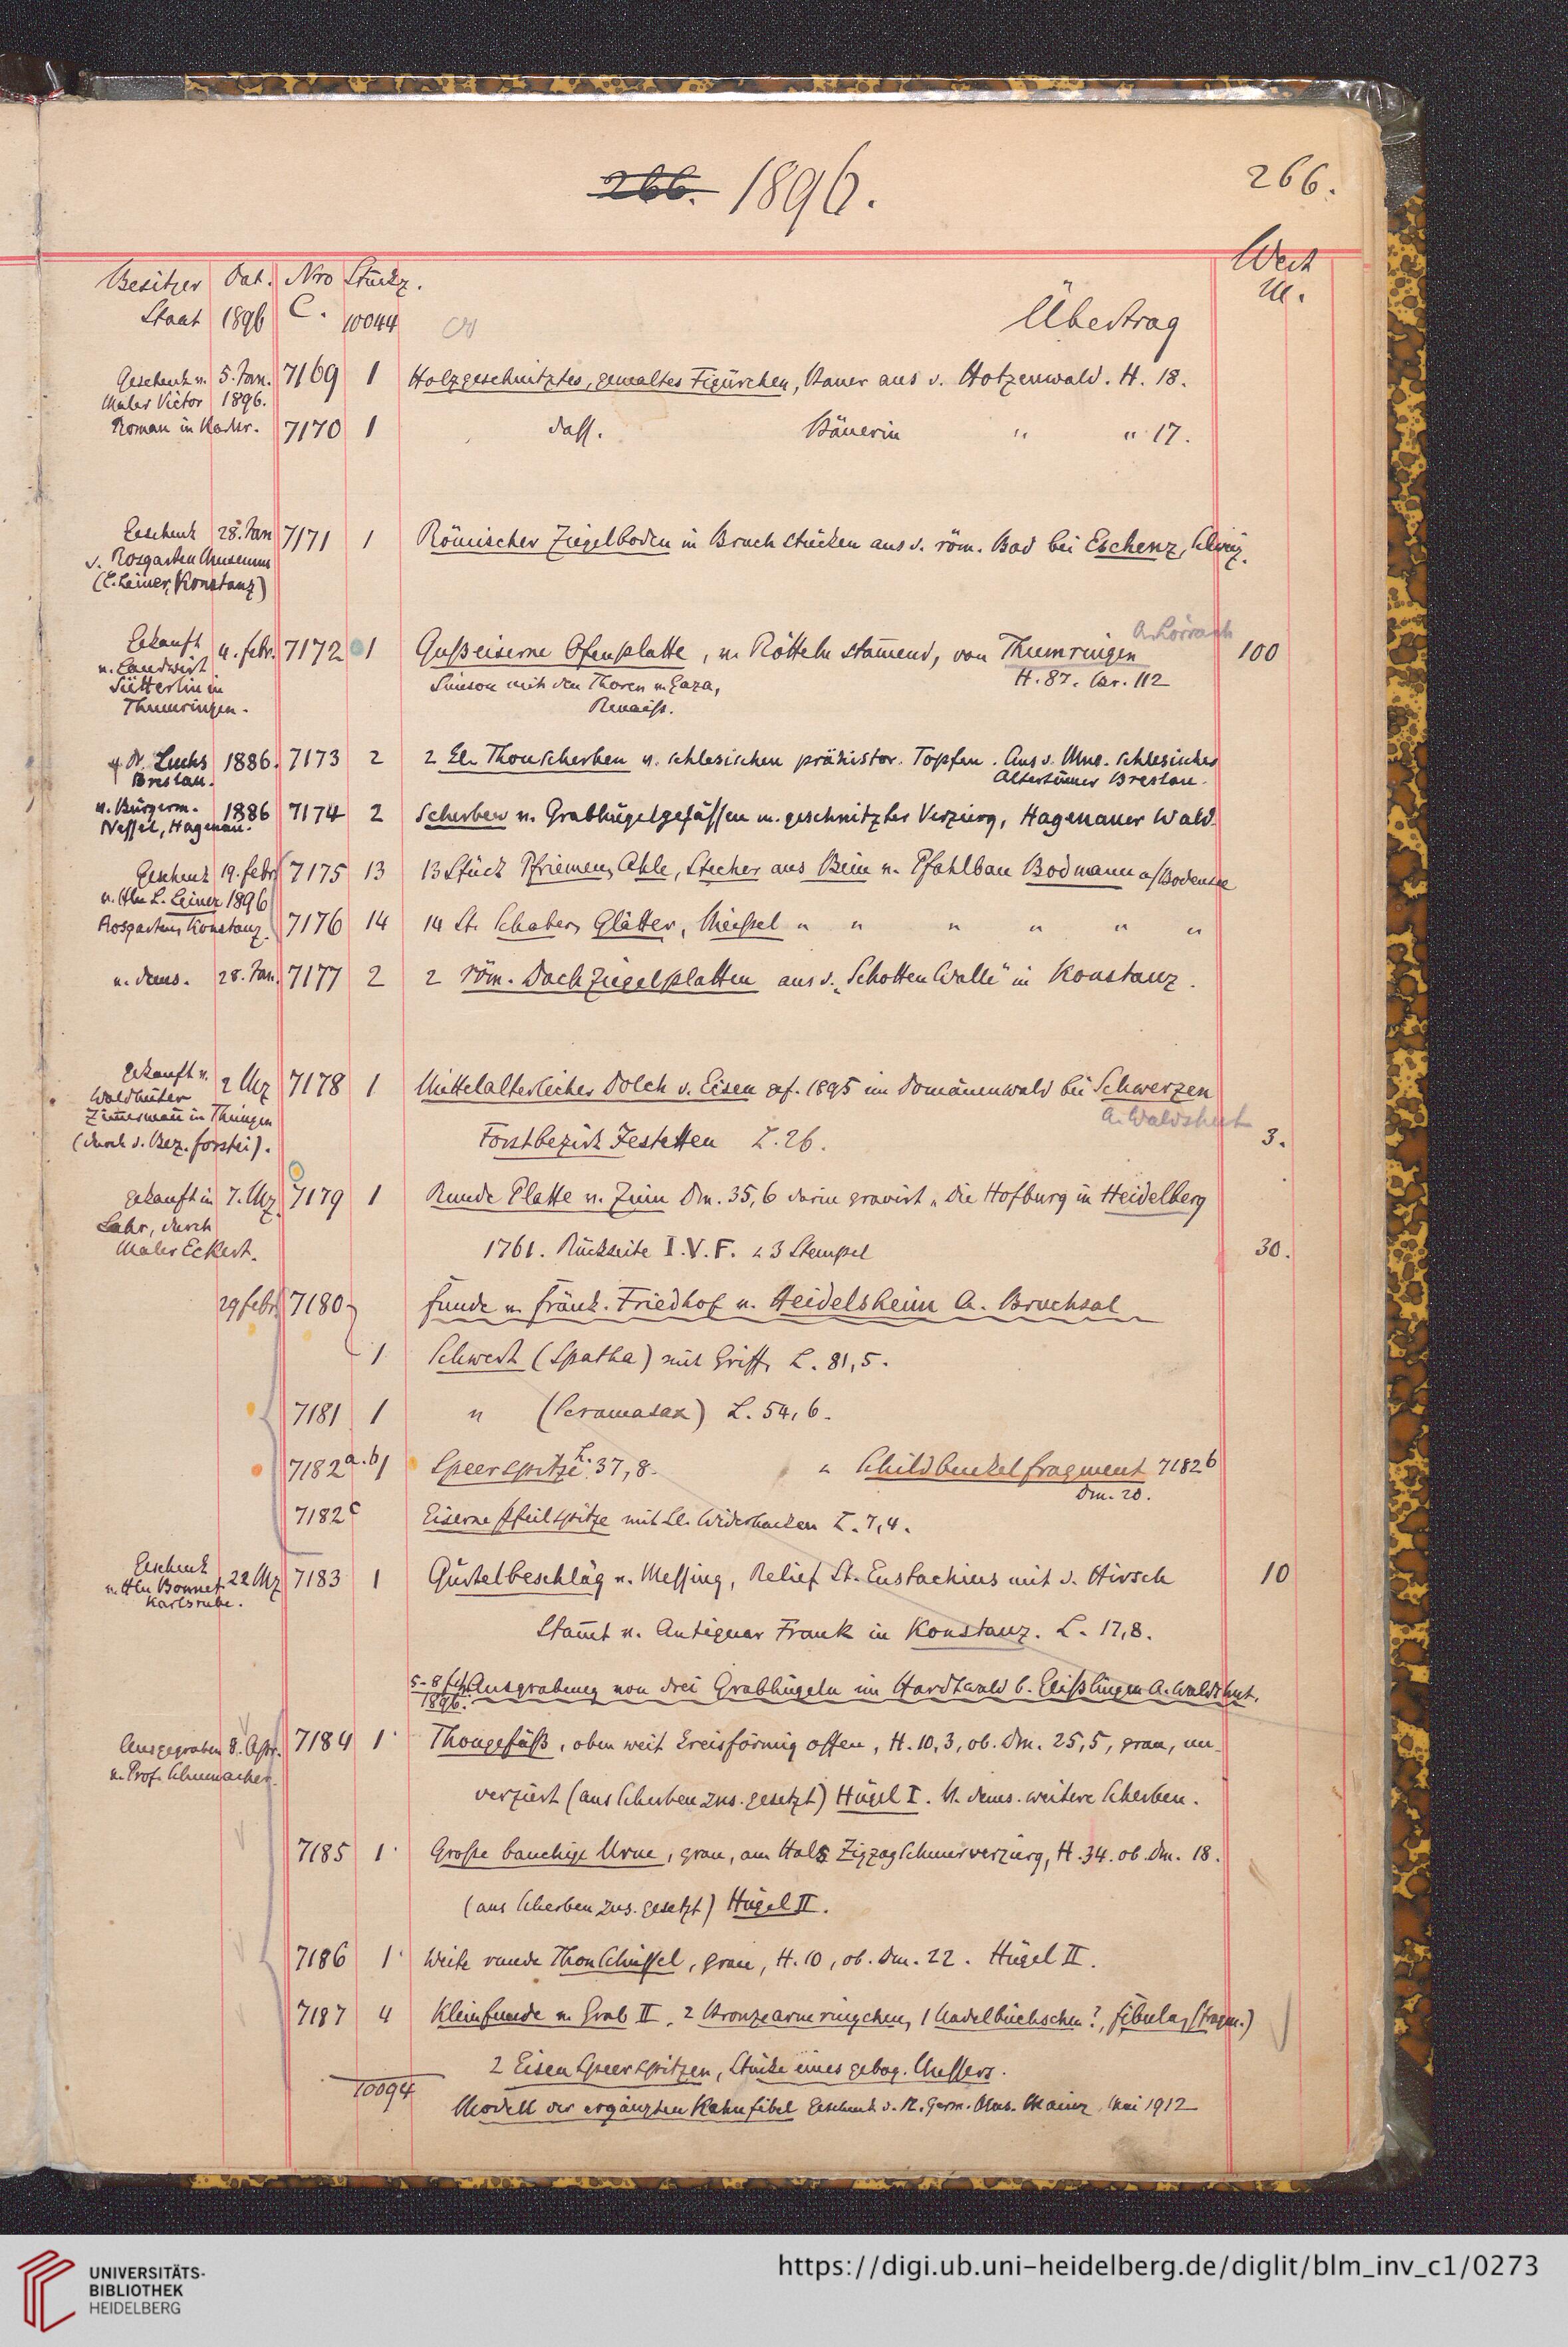 266. 1896. 266.
Besitzer Dat. Nro Stückz. Wert
Staat 1896 C. 10044 Übertrag M.
Geschenk v. 5. Jan. 7169 1 Holzgeschnitztes, gemaltes Figürchen, Bauer aus d. Hotzenwald. H. 18.
Maler Victor 1896.
Roman in Karlsr. 7170 1 dass. Bäuerin " " 17.
Geschenk 28. Jan 7171 1 Römischer Ziegelboden in Bruchstücken aus d. röm. Bad bei Eschenz, Schweiz.
d. Rosgarten Museums
(L. Leiner, Konstanz)
A. Lörrach
Gekauft 4. febr. 7172 1 Gußeiserne Ofenplatte, v. Rötteln stam̄end, von Thumringen 100
v. Landwirt
Sütterlin in Simson mit den Thoren v. Gaza, H. 87. Br. 112
Thumringen. Renaiss.
v. Dr. Luchs 1886. 7173 2 2 kl. Thonscherben v. schlesischen prähistor. Topfen. Aus d. Mus. schlesischer
Breslau. Altertümer Breslau.
v. Bürgerm. 1886 7174 2 Scherben v. Grabhügelgefässen m. geschnitzter Verzierg, Hagenauer Wald.
Nessel, Hagenau.
Geschenk 19. febr 7175 13 13 Stück Pfriemen, Ahle, Stecher aus Bein v. Pfahlbau Bodmann a/Bodensee
v. Hn L. Leiner 1896
Rosgarten, Konstanz. 7176 14 14 St. Schaber, Glätter, Meißel " " " " " "
v. dems. 28. Jan. 7177 2 2 röm. Dachziegelplatten aus d. „Schotten Walle" in Konstanz.
gekauft v. 2 Mz 7178 1 Mittelalterlicher Dolch v. Eisen gef. 1895 im Domänenwald bei Schwerzen
Waldhüter
Zim̄erman̄ in Thiengen A. Waldshut
(durch d. Bez. forstei). Forstbezirk Jestetten L. 26. 3.
gekauft in 7. Mz. 7179 1 Runde Platte v. Zinn Dm. 35,6 darin gravirt „Die Hofburg in Heidelberg
Lahr, durch
Maler Eckert. 1761. Rückseite I.V.F. u 3 Stempel 30.
29 febr 7180 Funde v. fränk. Friedhof v. Heidelsheim A. Bruchsal
1 Schwert (Spatha) mit Griff, L. 81,5.
7181 1 " (Scramasax) L. 54,6.
7182 a.b 1 Speerspitze L. 37,8. u Schildbuckelfragment 7182 b
Dm. 20.
7182 c Eiserne Pfeilspitze mit kl. Widerhacken L. 7,4.
Geschenk 22 Mz 7183 1 Gürtelbeschläg v. Messing, Relief St. Eustachius mit d. Hirsch 10
v. Hn Bonnet
Karlsruhe.
Stam̄t v. Antiquar Frank in Konstanz. L. 17,8.
5-8 feb. 1896. Ausgrabung von drei Grabhügeln im Hardtwald b. Geißlingen A. Waldshut.
Ausgegraben 8. Apr. 7184 1 Thongefäß, oben weit kreisförmig offen, H. 10,3, ob. Dm. 25,5, grau, un-
v. Prof. Schumacher.
verziert (aus Scherben zus. gesetzt) Hügel I. V. dems. weitere Scherben.
7185 1 Große bauchige Urne, grau, am Hals Zigzag Schnurverzierg, H. 34. ob. Dm. 18.
(aus Scherben zus. gesetzt) Hügel II.
7186 1 Weite runde Thonschüssel, grau, H. 10, ob. Dm. 22. Hügel II.
7187 4 Kleinfunde v. Grab II, 2 Bronzearmringchen, 1 Nadelbüchschen?, fibula, (fragm.)
2 Eisen Speerspitzen, Stücke eines gebog. Messers.
10094
Modell der ergänzten Kahnfibel Geschenk d. R. Germ. Mus. Mainz Mai 1912
UNIVERSITÄTS-
BIBLIOTHEK
HEIDELBERG
https://digi.ub.uni-heidelberg.de/diglit/blm_inv_c1/0273